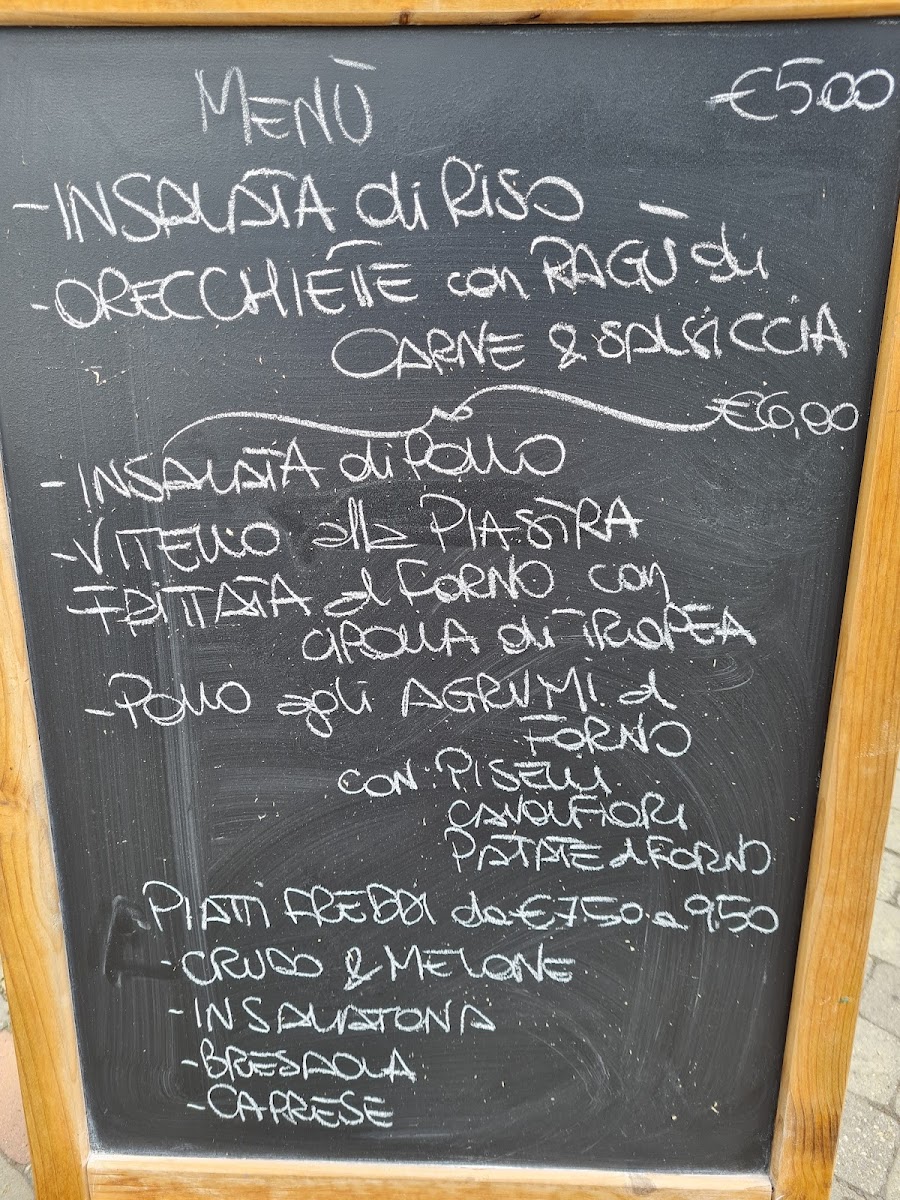 MENÙ €5.00
-INSALATA di RISO -
-ORECCHIETTE con RAGÙ di
CARNE & SALSICCIA
€6,00
-INSALATA di POLLO
-VITELLO alla PIASTRA
-FRITTATA al FORNO con
CIPOLLA di TROPEA
-POLLO agli AGRUMI al
FORNO
CON: PISELLI
CAVOLFIORI
PATATE al FORNO
PIATTI FREDDI da €7.50 a 9.50
-CRUDO & MELONE
-INSALATONA
-BRESAOLA
-CAPRESE